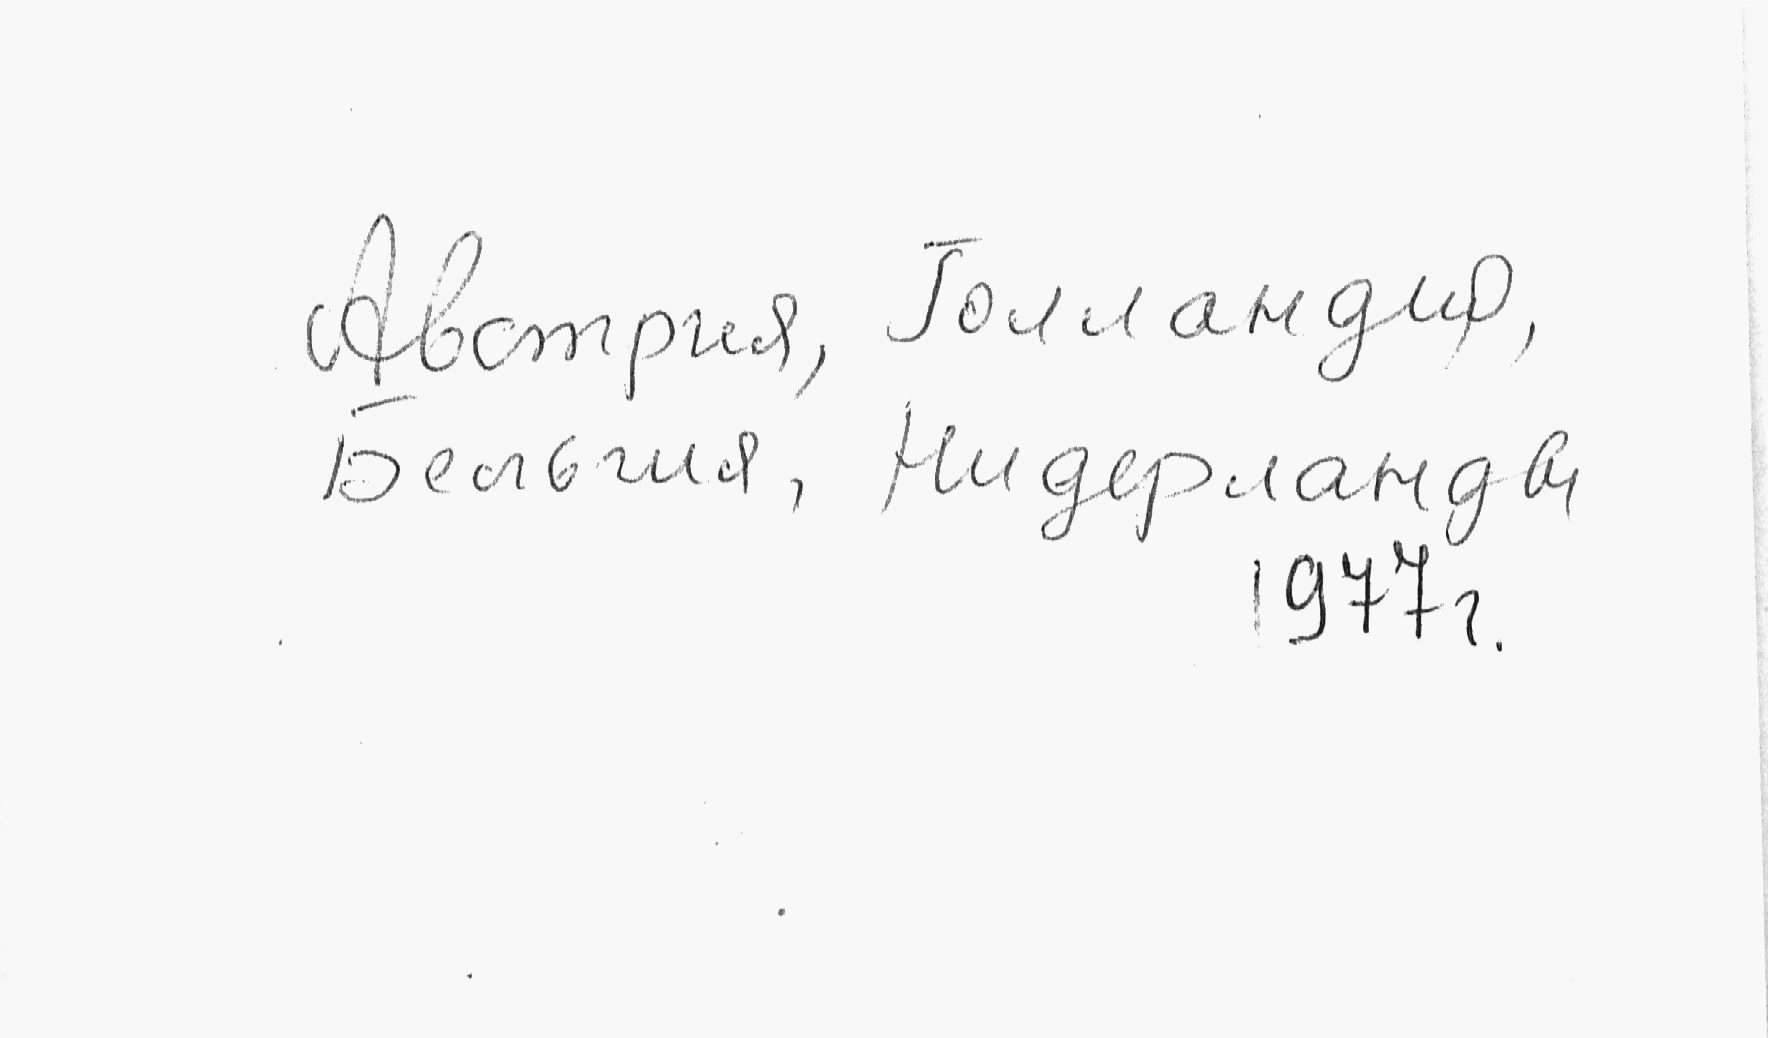 Австрия, Голландия,
Бельгия, Нидерланды
1977г.